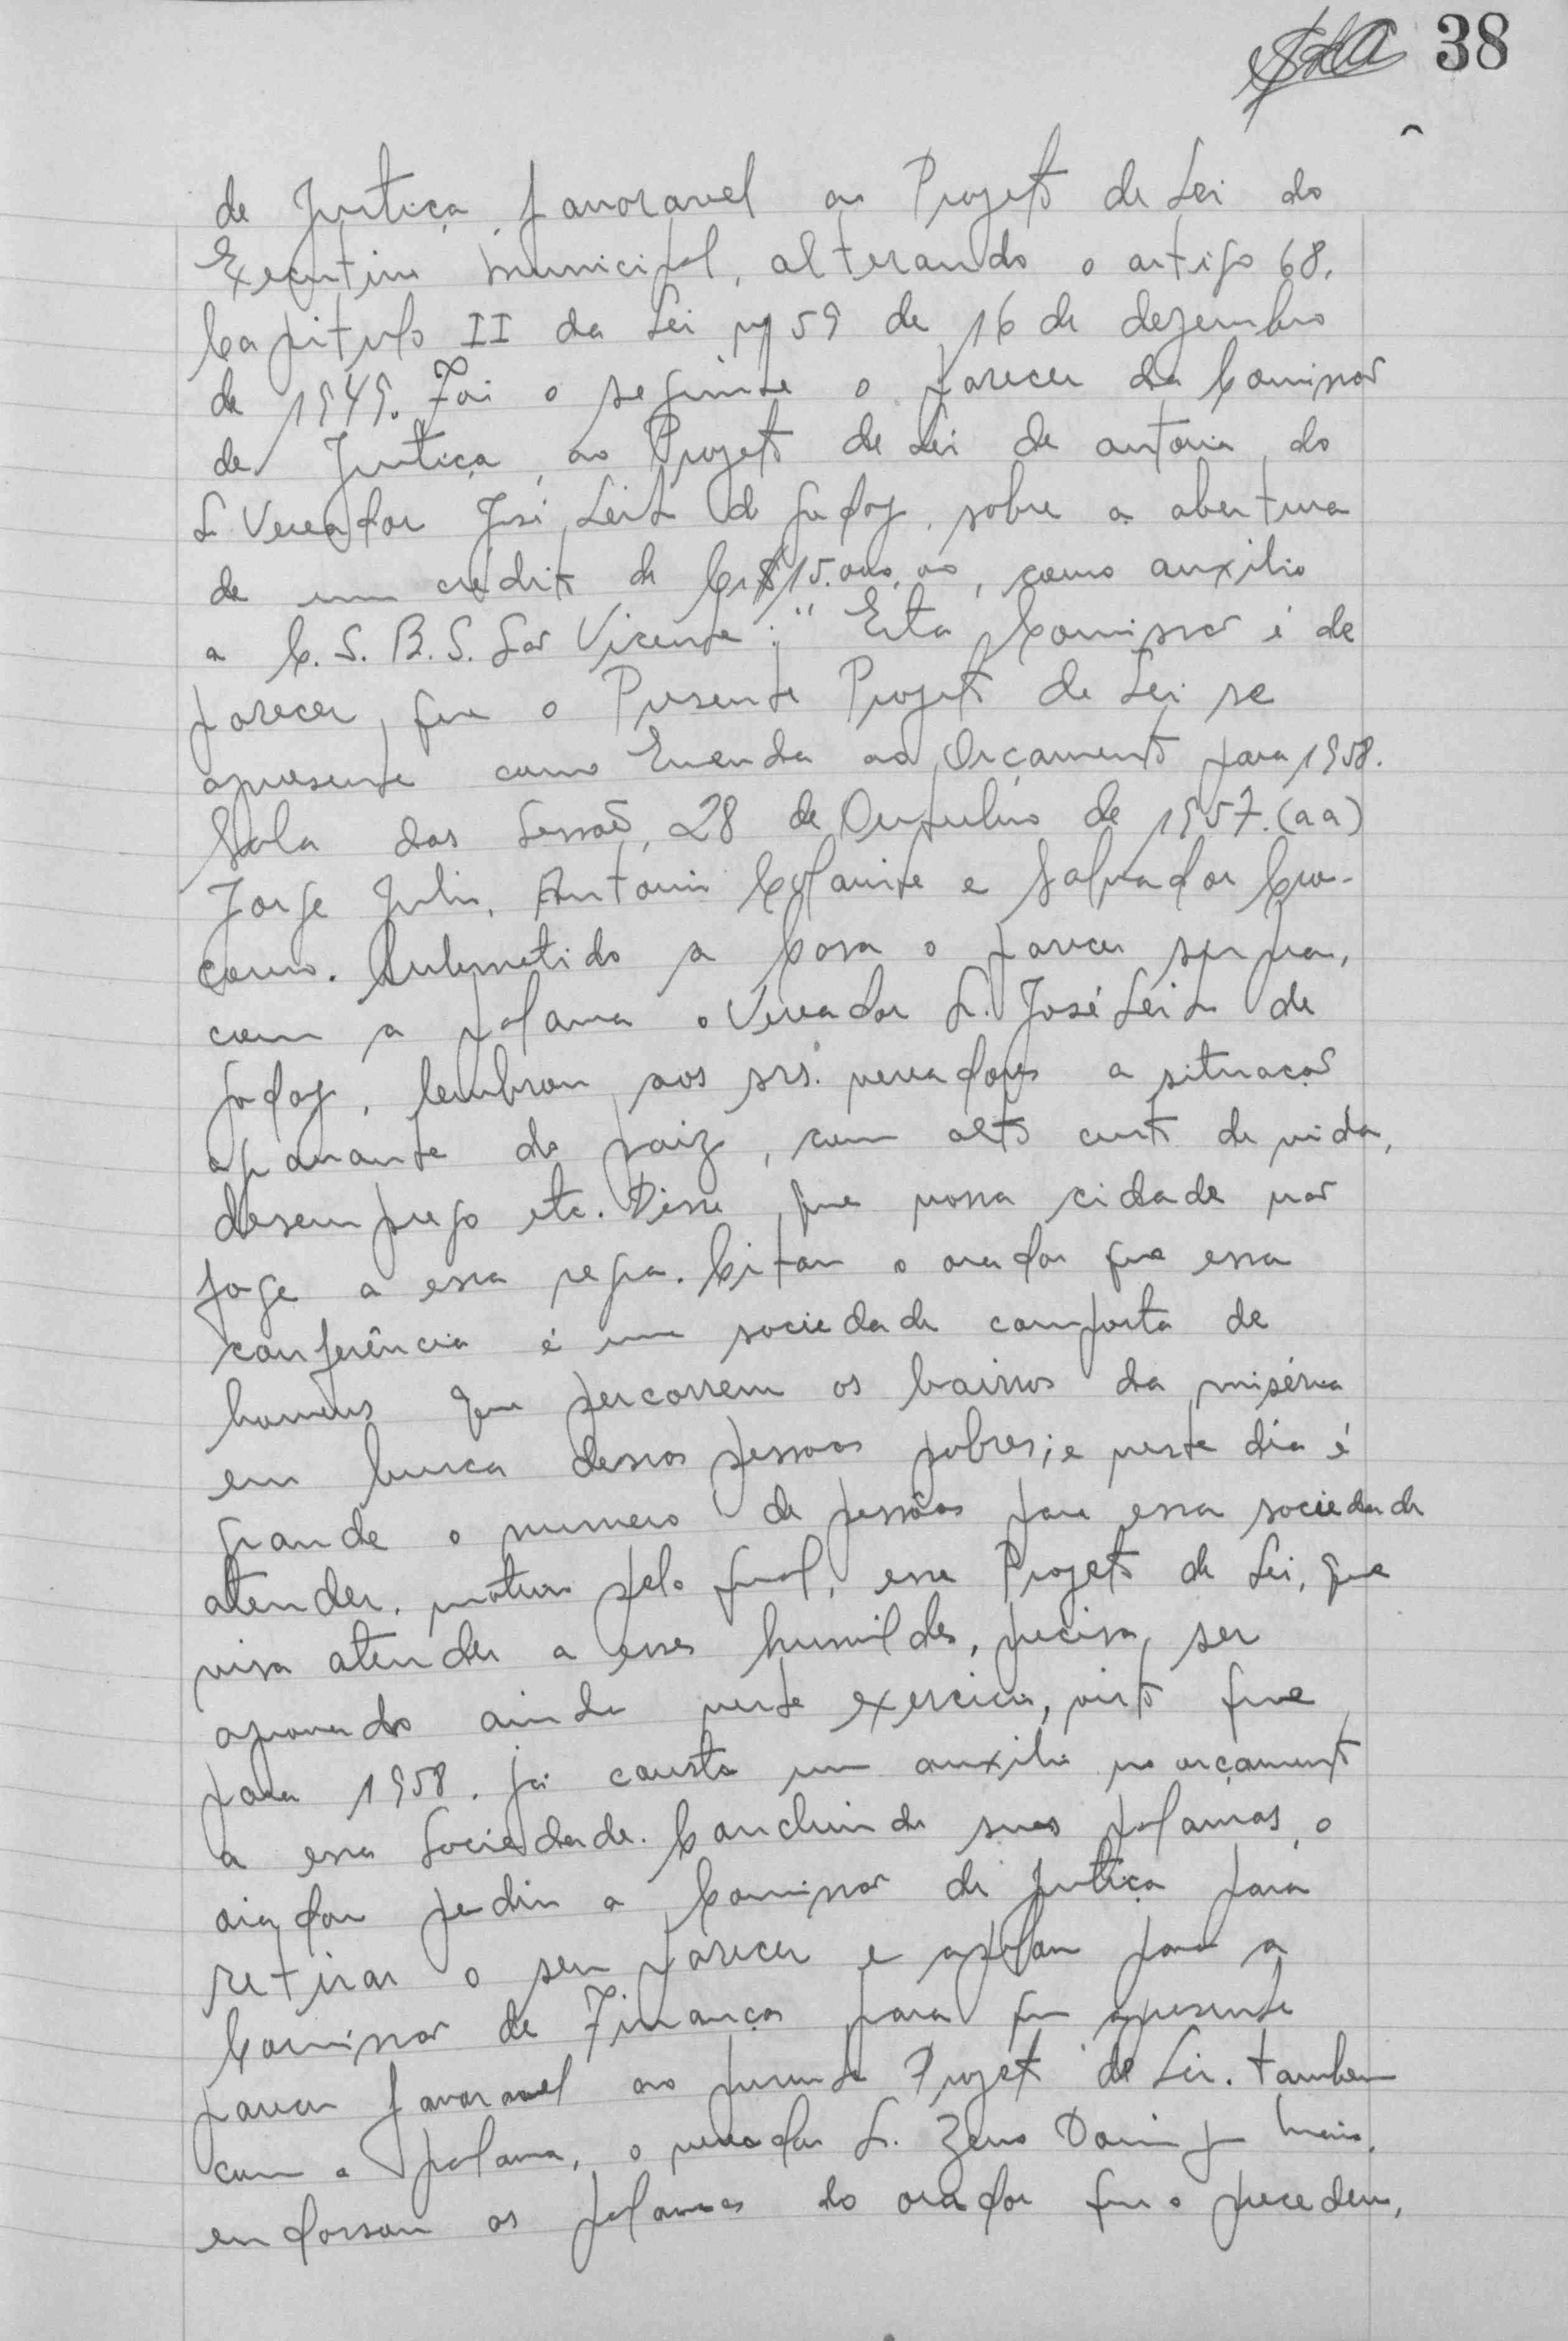 38
de Justiça, favoravel ao Projeto de Lei do
Executivo Municipal, alterando o artigo 68,
Capitulo II da Lei nº 59 de 16 de dezembro
de 1949. Foi o seguinte o parecer da Comissão
de Justiça, ao Projeto de Lei de autoria do
S. Vereador José Leite de Godoy, sobre a abertura
de um crédito de Cr$ 15.000,00, como auxilio
a C. S. B. S. São Vicente: "Esta Comissão é de
parecer que o Presente Projeto de Lei se
apresente como Emenda ao Orçamento para 1958.
Sala das Sessão, 28 de Outubro de 1957. (aa)
Jorge Julio, Antonio e Salvador
Submetido a Casa o parecer supra,
com a palavra o Vereador S. José Leite de
Godoy, lembrou aos srs. vereadores a situação
do paiz, com alto custo de vida,
desemprego etc. Disse que nossa cidade não
foge a essa regra. Citou o orador que essa
conferência é uma sociedade composta de
homens que percorrem os bairros da miséria
em busca dessas pessoas pobres; e neste dia é
grande o numero de pessôas para essa sociedade
atender, motivo pelo qual, esse Projeto de Lei, que
visa atender a esses humildes, precisa ser
aprovado ainda neste exercicio, visto que
para 1958, já consta um auxilio no orçamento
a essa Sociedade. Concluindo suas palavras, o
orador pediu a Comissão de Justiça para
retirar o seu parecer e apelou para a
Comissão de Finanças para que apresente
parecer favoravel ao presente Projeto de Lei. Tambem
com a palavra, o vereador S. Zeno
endossou as palavras do orador que o precedeu,